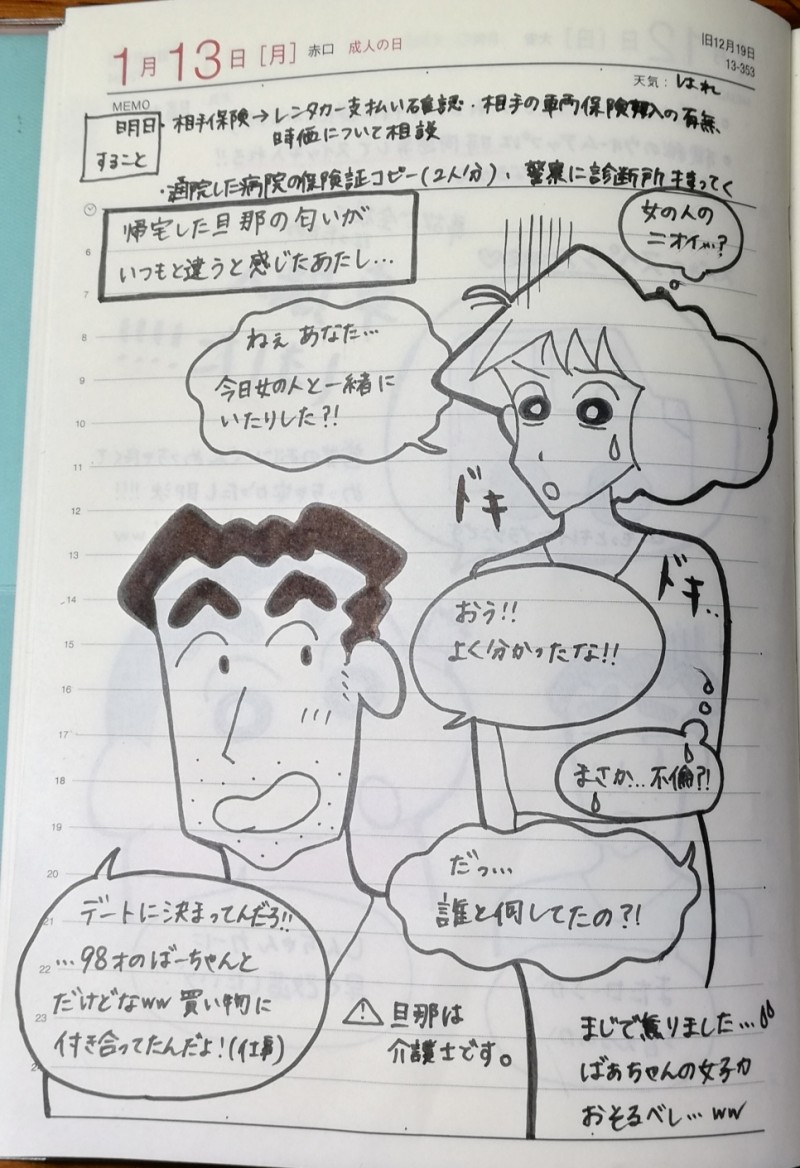 1月13日[月] 赤口 成人の日
旧12月19日
13-353
天気: はれ
MEMO
明日
すること
・相手保険→レンタカー支払い確認・相手の車両保険加入の有無、
時価について相談
・通院した病院の保険証コピー(2人分)、警察に診断所持ってく
帰宅した旦那の匂いが
いつもと違うと感じたあたし…
女の人の
ニオイ…?
ねぇ あなた…
今日女の人と一緒に
いたりした?!
ドキ
ドキ..
おう!!
よく分かったな!!
まさか…不倫?!
だっ…
誰と何してたの?!
デートに決まってんだろ!!
…98才のばーちゃんと
だけどなww 買い物に
付き合ってたんだよ!(仕事)
⚠ 旦那は
介護士です。
まじで焦りました…
ばあちゃんの女子力
おそるべし…ww
6
7
8
9
10
11
12
13
14
15
16
17
18
19
20
21
22
23